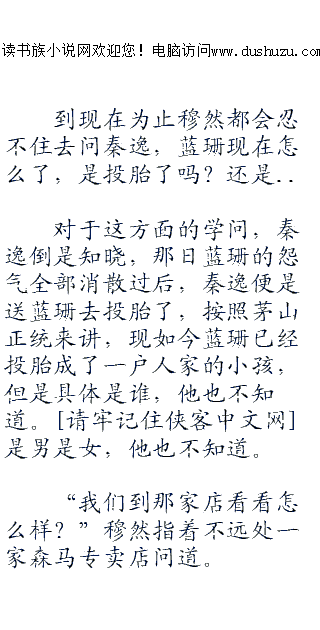 读书族小说网欢迎您！电脑访问www.dushuzu.com
到现在为止穆然都会忍
不住去问秦逸，蓝珊现在怎
么了，是投胎了吗？还是..
对于这方面的学问，秦
逸倒是知晓，那日蓝珊的怨
气全部消散过后，秦逸便是
送蓝珊去投胎了，按照茅山
正统来讲，现如今蓝珊已经
投胎成了一户人家的小孩，
但是具体是谁，他也不知
道。[请牢记住侠客中文网]
是男是女，他也不知道。
“我们到那家店看看怎
么样？”穆然指着不远处一
家森马专卖店问道。